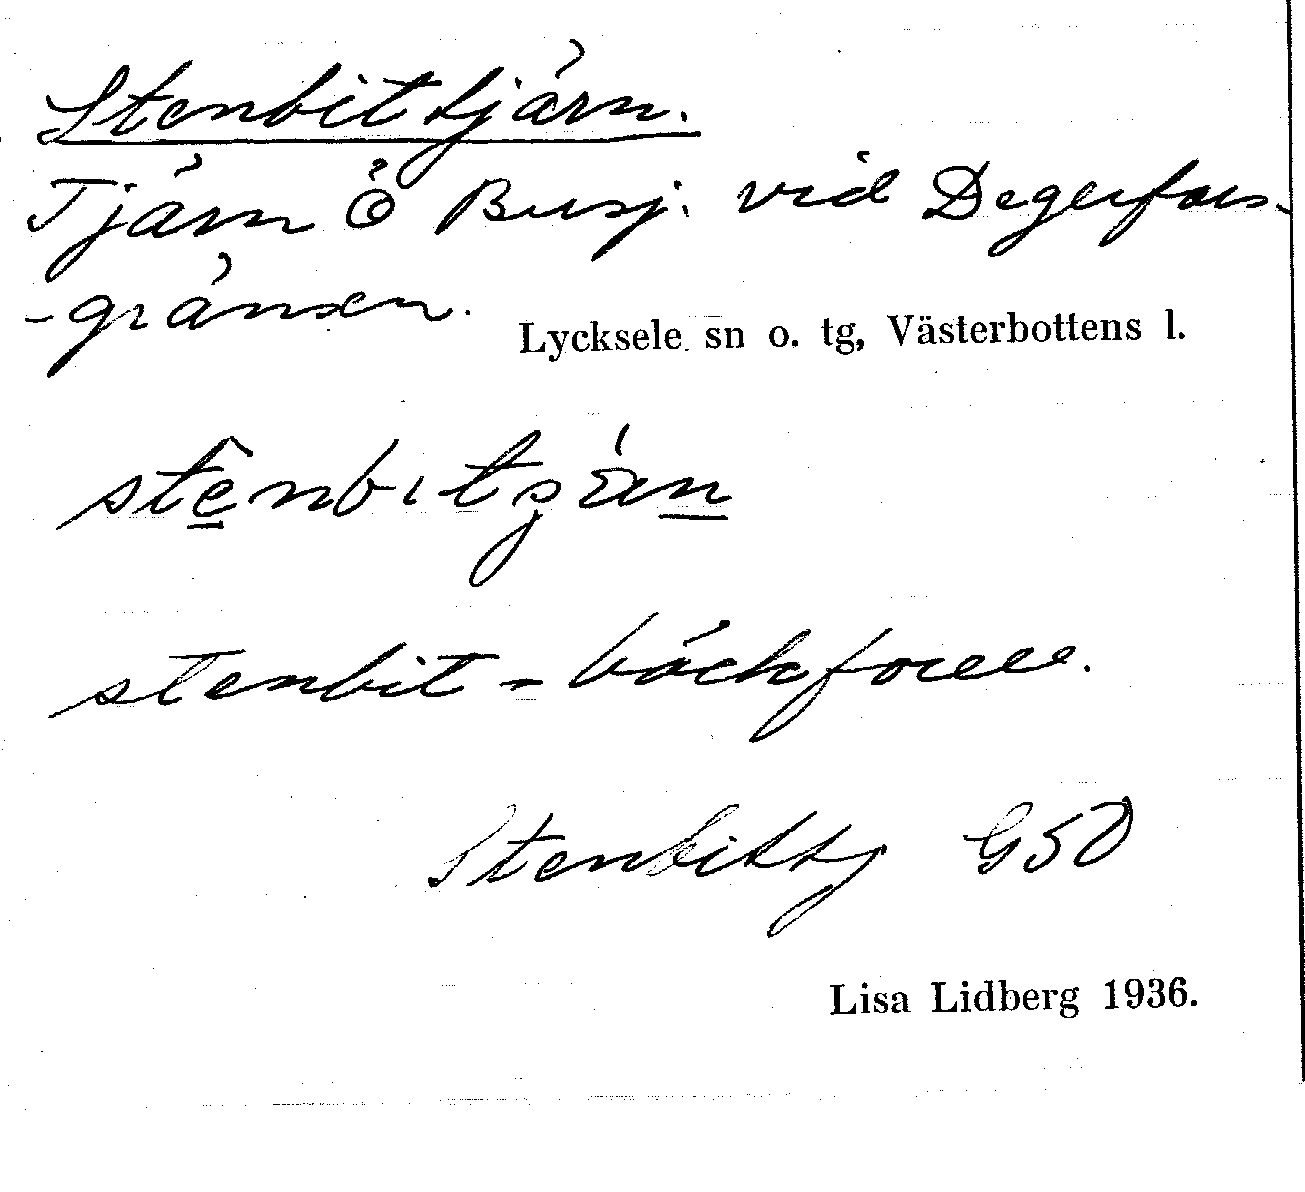 Stenbittjärn.
Tjärn Ö Busj. vid Degerfors-
-gränsen.
Lycksele sn o. tg, Västerbottens l.
stenbit = bäckforell.
Stenbittj G50
Lisa Lidberg 1936.